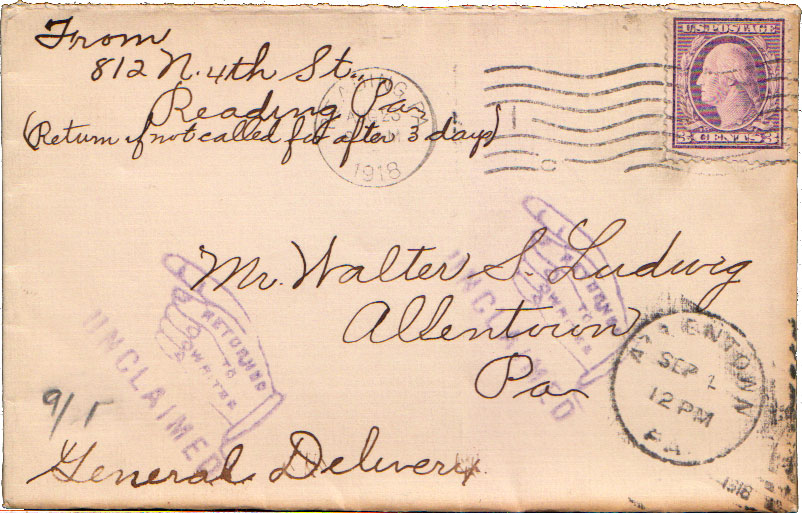 From
812 N. 4th St.,
Reading Pa.
(Return if not called for after 3 days)
READING, PA.
AUG 23
1918
U.S. POSTAGE
3 CENTS 3
Mr. Walter S. Ludwig
Allentown
Pa
General Delivery
9/1
RETURNED
TO
WRITER
UNCLAIMED
RETURNED
TO
WRITER
UNCLAIMED
ALLENTOWN
SEP 1
12 PM
PA.
1918